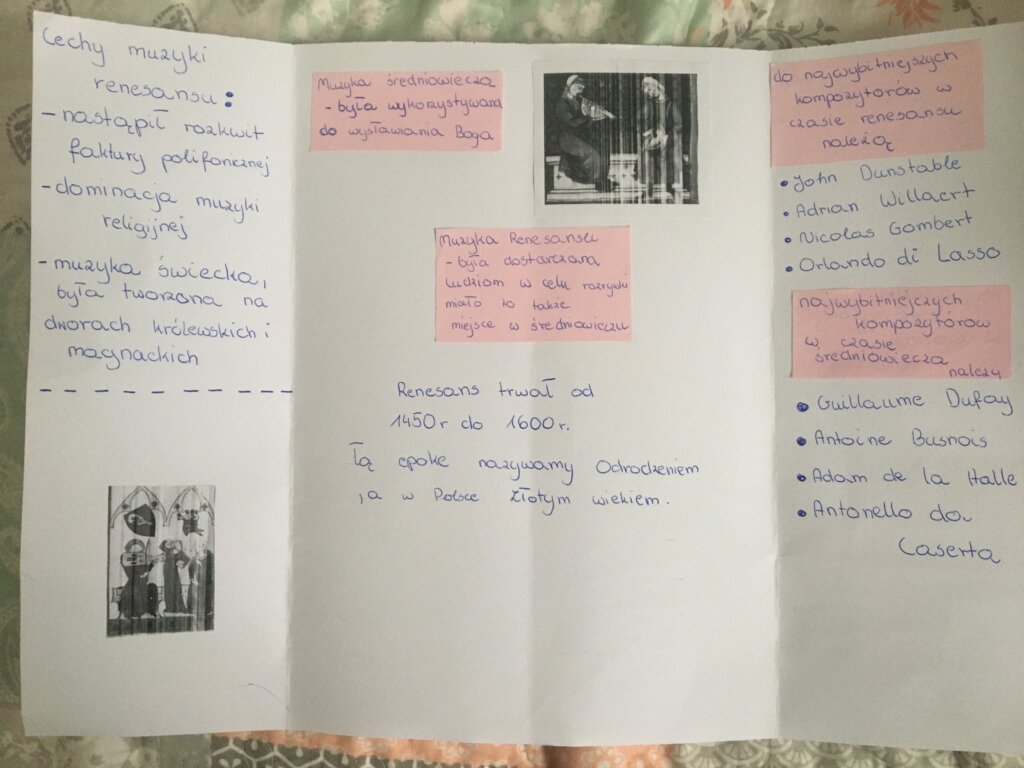 Cechy muzyki
renesansu:
- nastąpił rozkwit
faktury polifonicznej
- dominacja muzyki
religijnej
- muzyka świecka,
była tworzona na
dworach królewskich i
magnackich
Muzyka średniowiecza
- była wykorzystywana
do wysławiania Boga
Muzyka Renesansu
- była dostarczana
ludziom w celu rozrywki
miało to także
miejsce w średniowieczu
Renesans trwał od
1450r do 1600r.
Tą epoke nazywamy Odrodzeniem
, a w Polsce złotym wiekiem.
do najwybitniejszych
kompozytorów w
czasie renesansu
należą
• John Dunstable
• Adrian Willaert
• Nicolas Gombert
• Orlando di Lasso
najwybitniejczych
kompozytórów
w czasie
średniowiecza
należy
• Guillaume Dufay
• Antoine Busnois
• Adam de la Halle
• Antonello da
Caserta